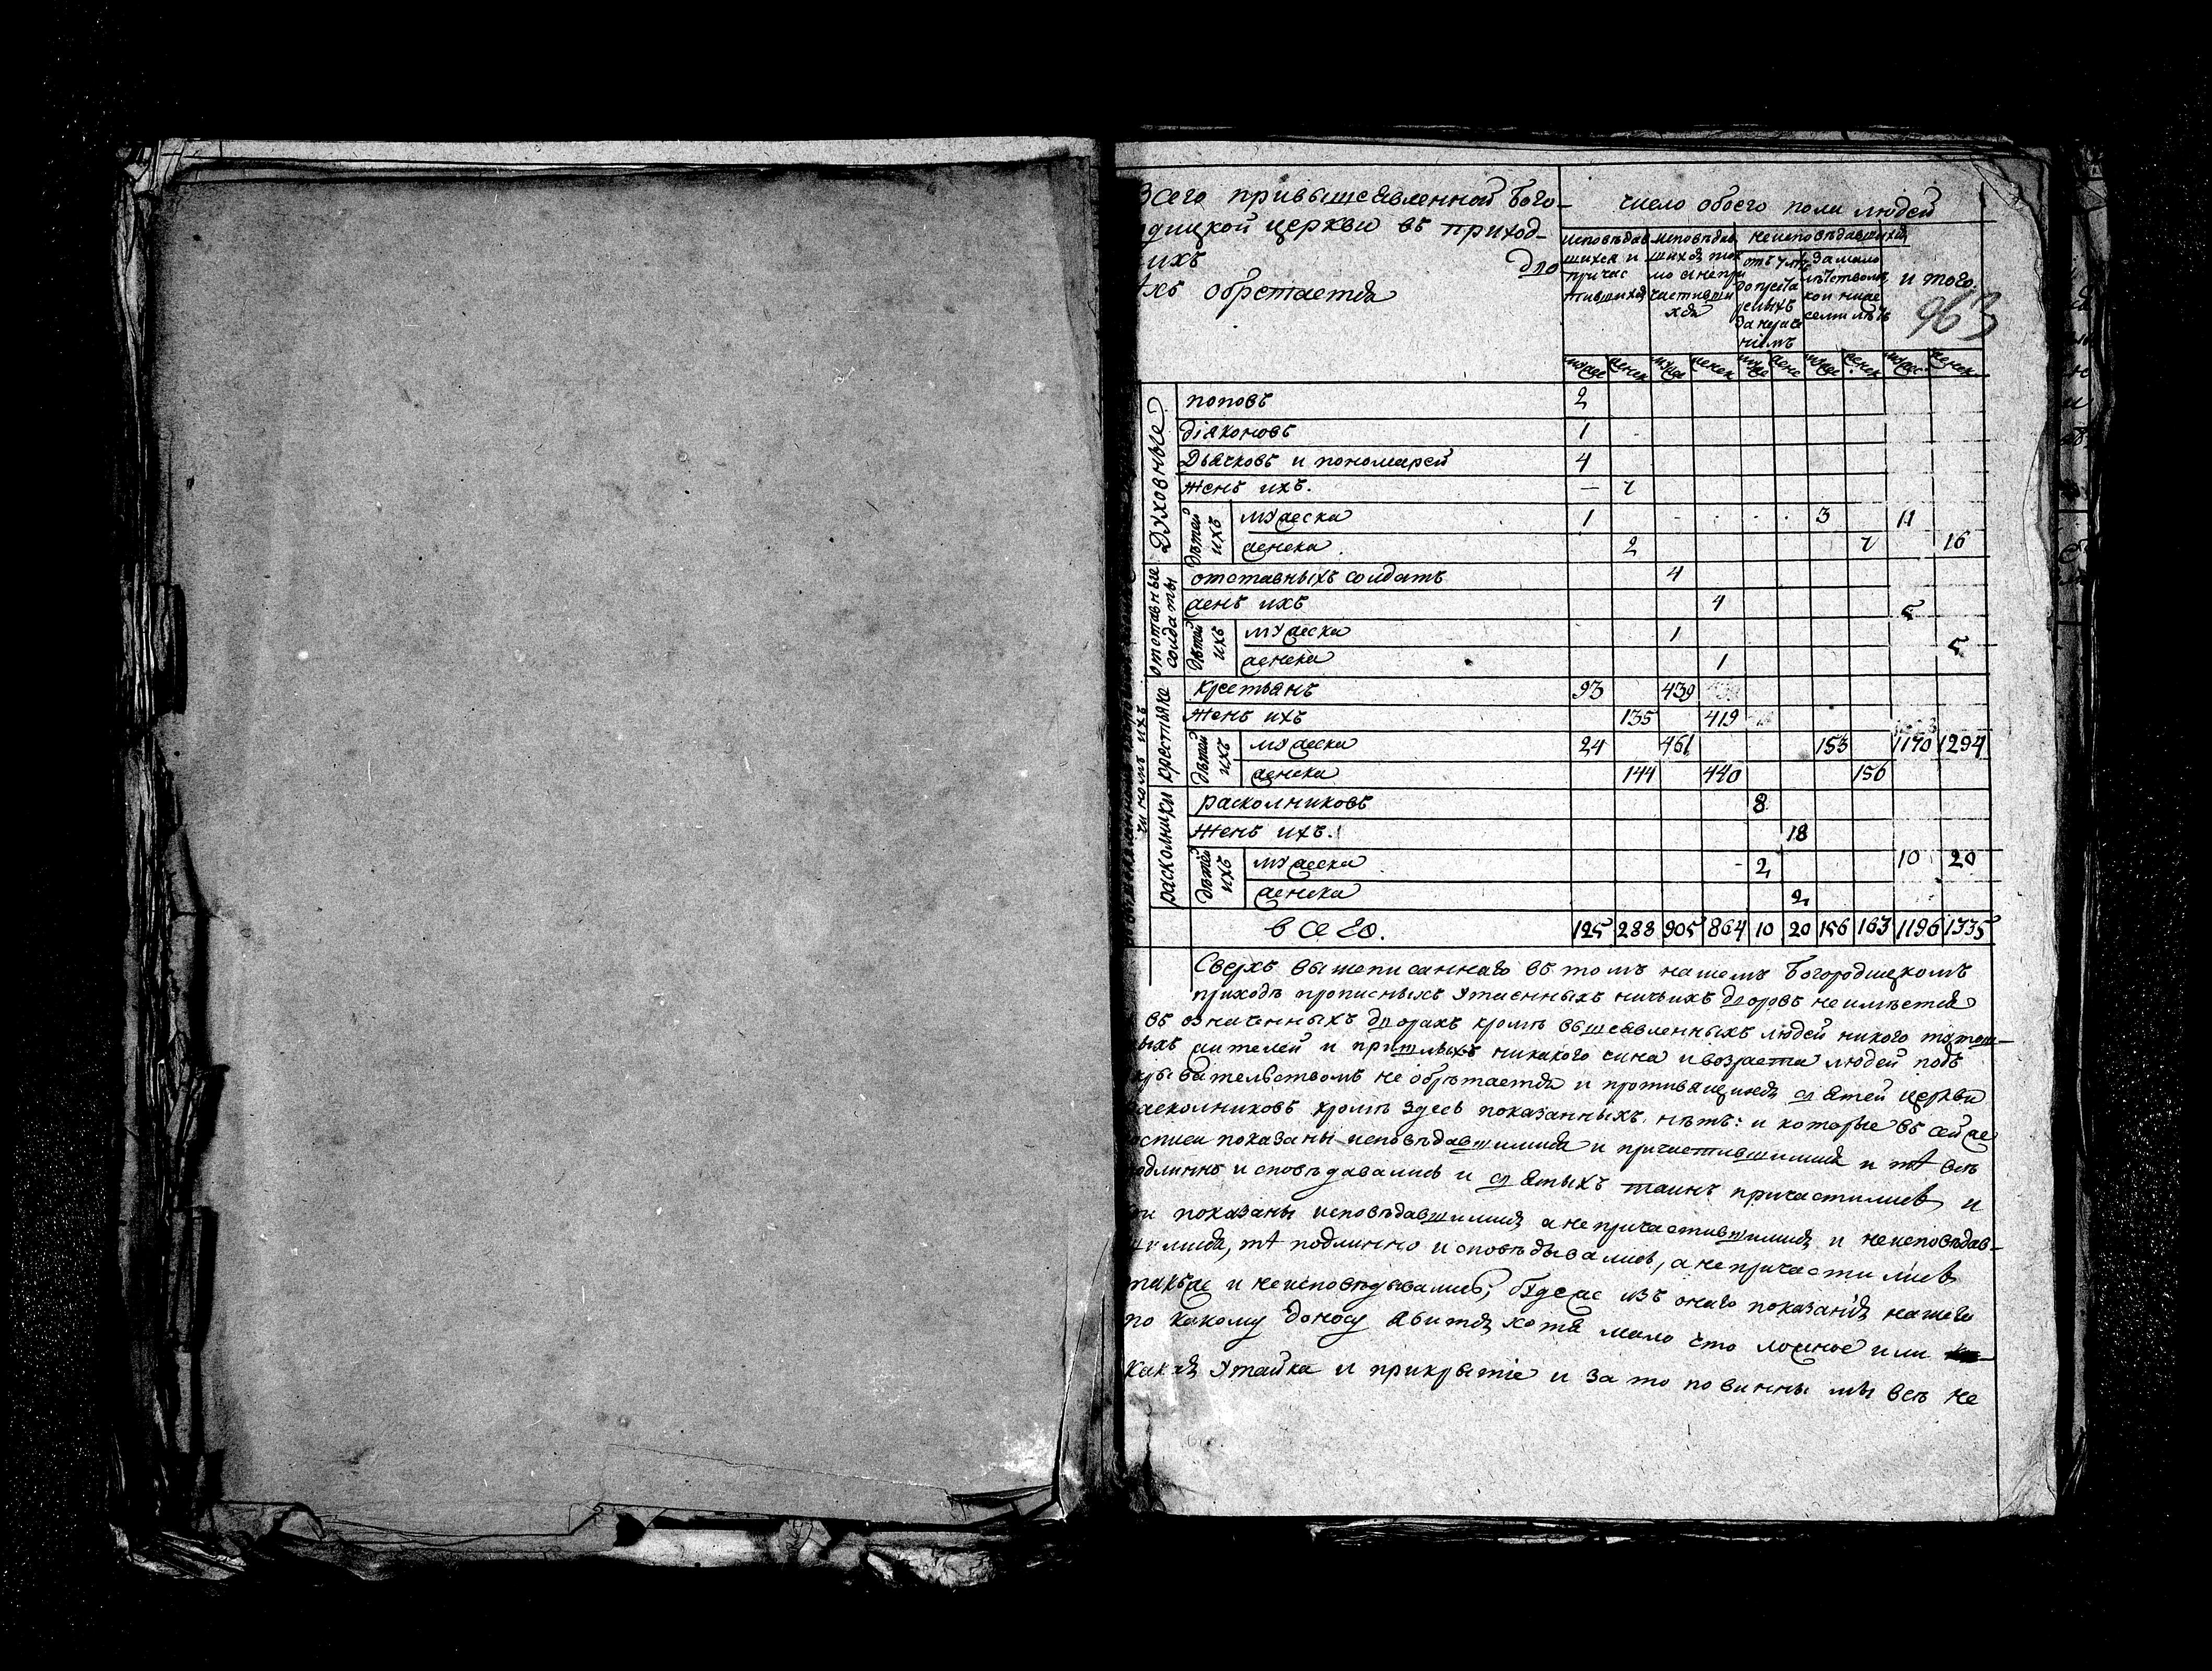 Всего привышеявленной Бого- число обоего пола людей
церкви въ приход-
ихъ дво
обретается
исповѣдав исповѣдав неисповѣдавшихся
шихся и шихся ток
причас мо а непри
тившихся частивши
хся
за мало
лѣтствомъ
кои ниже
семи лѣтъ
и того
963
мужес женск мужес женск муже жене муже женск мужес женск
духовные
поповъ 2
дiяконовъ 1
Дьячковъ и пономарей 4
Женъ ихъ. — 7
дѣтей ихъ
мужеска 1 3 11
женска 2 7 16
отставные солдаты
отставныхъ солдатъ 4
женъ ихъ 4 5
дѣтей ихъ
мужеска 1
женска 1 5
крестьяне
крестьянъ 93 439
Женъ ихъ 135 419
дѣтей ихъ
мужеска 24 461 153 1170 1294
женска 144 440 156
расколники
расколниковъ 8
Женъ ихъ. 18
дѣтей ихъ
мужеска 2 10 20
женска 2
чиномъ ихъ
всего. 125 288 905 864 10 20 156 163 1196 1335
Сверхъ вышеписаннаго въ томъ нашемъ Богородицкомъ
приходѣ прописныхъ утаенныхъ ничьихъ дворовъ не имѣется
въ означенныхъ дворахъ кромѣ вышеявленныхъ людей никого
жителей и пришлыхъ никакого чина и возраста людей подъ
не обрѣтается и противящихся святей церкви
расколниковъ кромѣ здесь показанныхъ нѣтъ: и которые въ сей же
росписи показаны исповѣдавшимися и причастившимися и тѣ всѣ
подлинно исповѣдавались и святыхъ таинъ причастились и
показаны исповѣдавшимися а непричастившимися и неисповѣдав-
шимися, тѣ подлинно исповѣдывались, а непричастились
такъже и неисповѣдывались; будеже изъ онаго показанiя нашего
по какому доносу явится хотя мало что ложное или
какая утайка и прикрытiе и за то повинны мы всѣ не